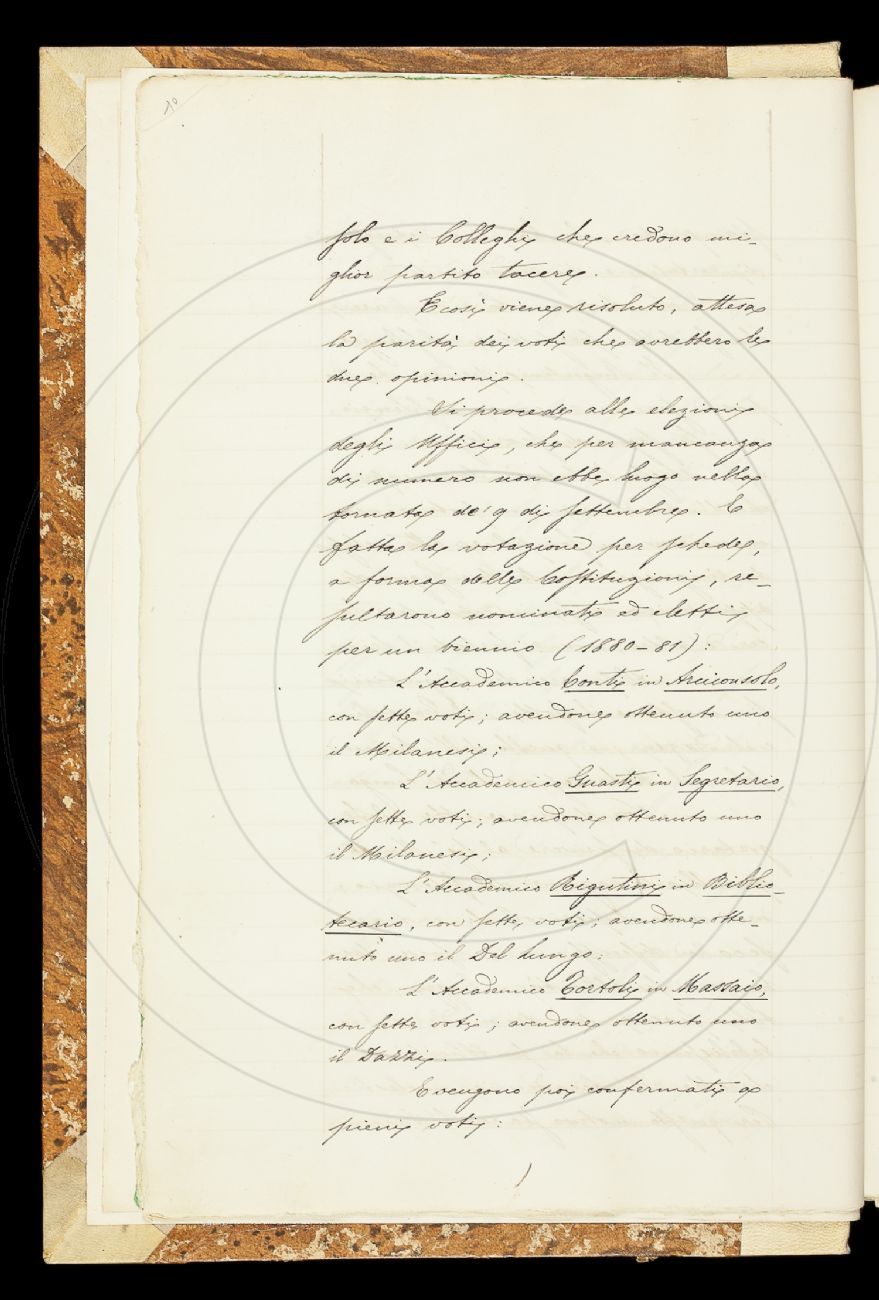 10
solo e i Colleghi che credono mi-
glior partito tacere.
E così viene risoluto, attesa
la parità dei voti che avrebbero le
due opinioni.
Si procede alle elezioni
degli Uffici, che per mancanza
di numero non ebbe luogo nella
tornata de' 9 di settembre. E
fatta la votazione per schede,
a forma delle Costituzioni, re-
sultarono nominati ed eletti
per un biennio (1880-81):
L'Accademico Conti in Arciconsolo,
con sette voti; avendone ottenuto uno
il Milanesi;
L'Accademico Guasti in Segretario,
con sette voti; avendone ottenuto uno
il Milanesi;
L'Accademico Rigutini in Biblio-
tecario, con sette voti; avendone otte-
nuto uno il Del Lungo:
L'Accademico Tortoli in Massaio,
con sette voti; avendone ottenuto uno
il Dazzi.
E vengono poi confermati a
pieni voti: